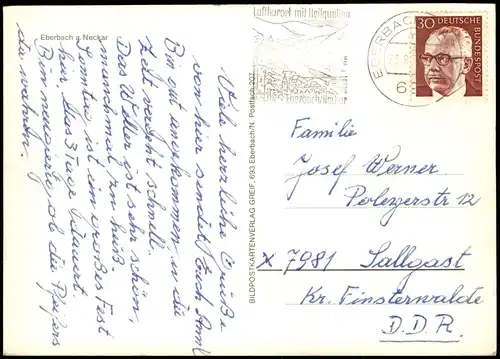 Eberbach a. Neckar
Luftkurort mit Heilquellen
Eberbach/Neckar
EBERBACH
6
30 DEUTSCHE BUNDESPOST
BILDPOSTKARTENVERLAG GREIF, 693 Eberbach/N. Postfach 207
Viele herzliche Grüße
von hier sendet Euch Anni
Bin gut angekommen, u. die
Zeit vergeht schnell.
Das Wetter ist sehr schön,
manchmal zu heiß.
Samstag ist ein großes Fest
hier. Das 3 Tage dauert.
Bin neugierig ob die
da wohnen.
Familie
Josef Werner
12
x 7981 Sallgast
Kr. Finsterwalde
D.D.R.